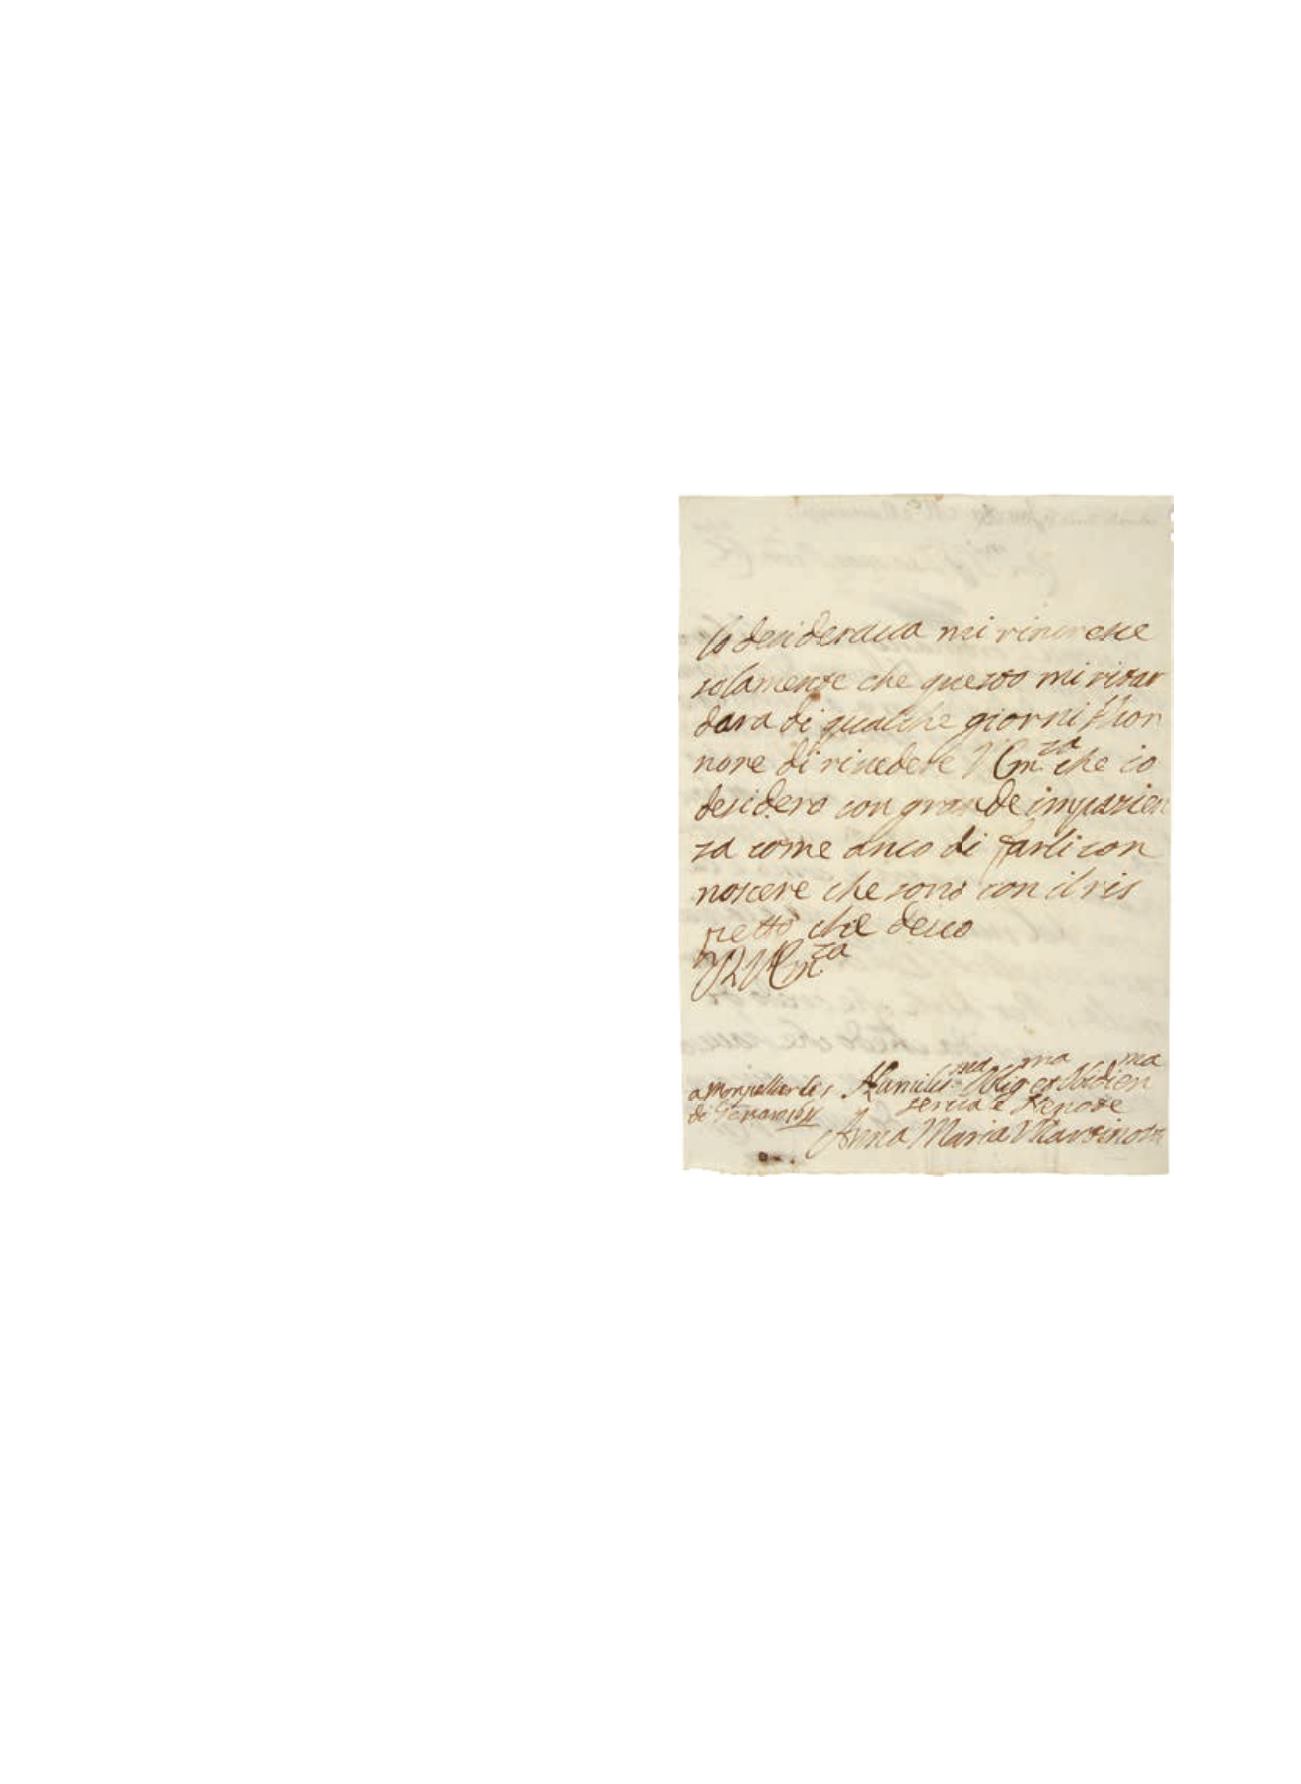 lo desideraua mi rincresce
solamente che questo mi ritar
dara di qualche giorni l'hon
nore di riuedere V Em.za che io
desidero con grande impazien
za come anco di farli con
noscere che sono con il ris
petto che deuo
D V Em.za
Humilis.ma Oblig.ma et Obidien.ma
a Monpellier li
di Genaro
serua e Nepote
Anna Maria Martinozzi